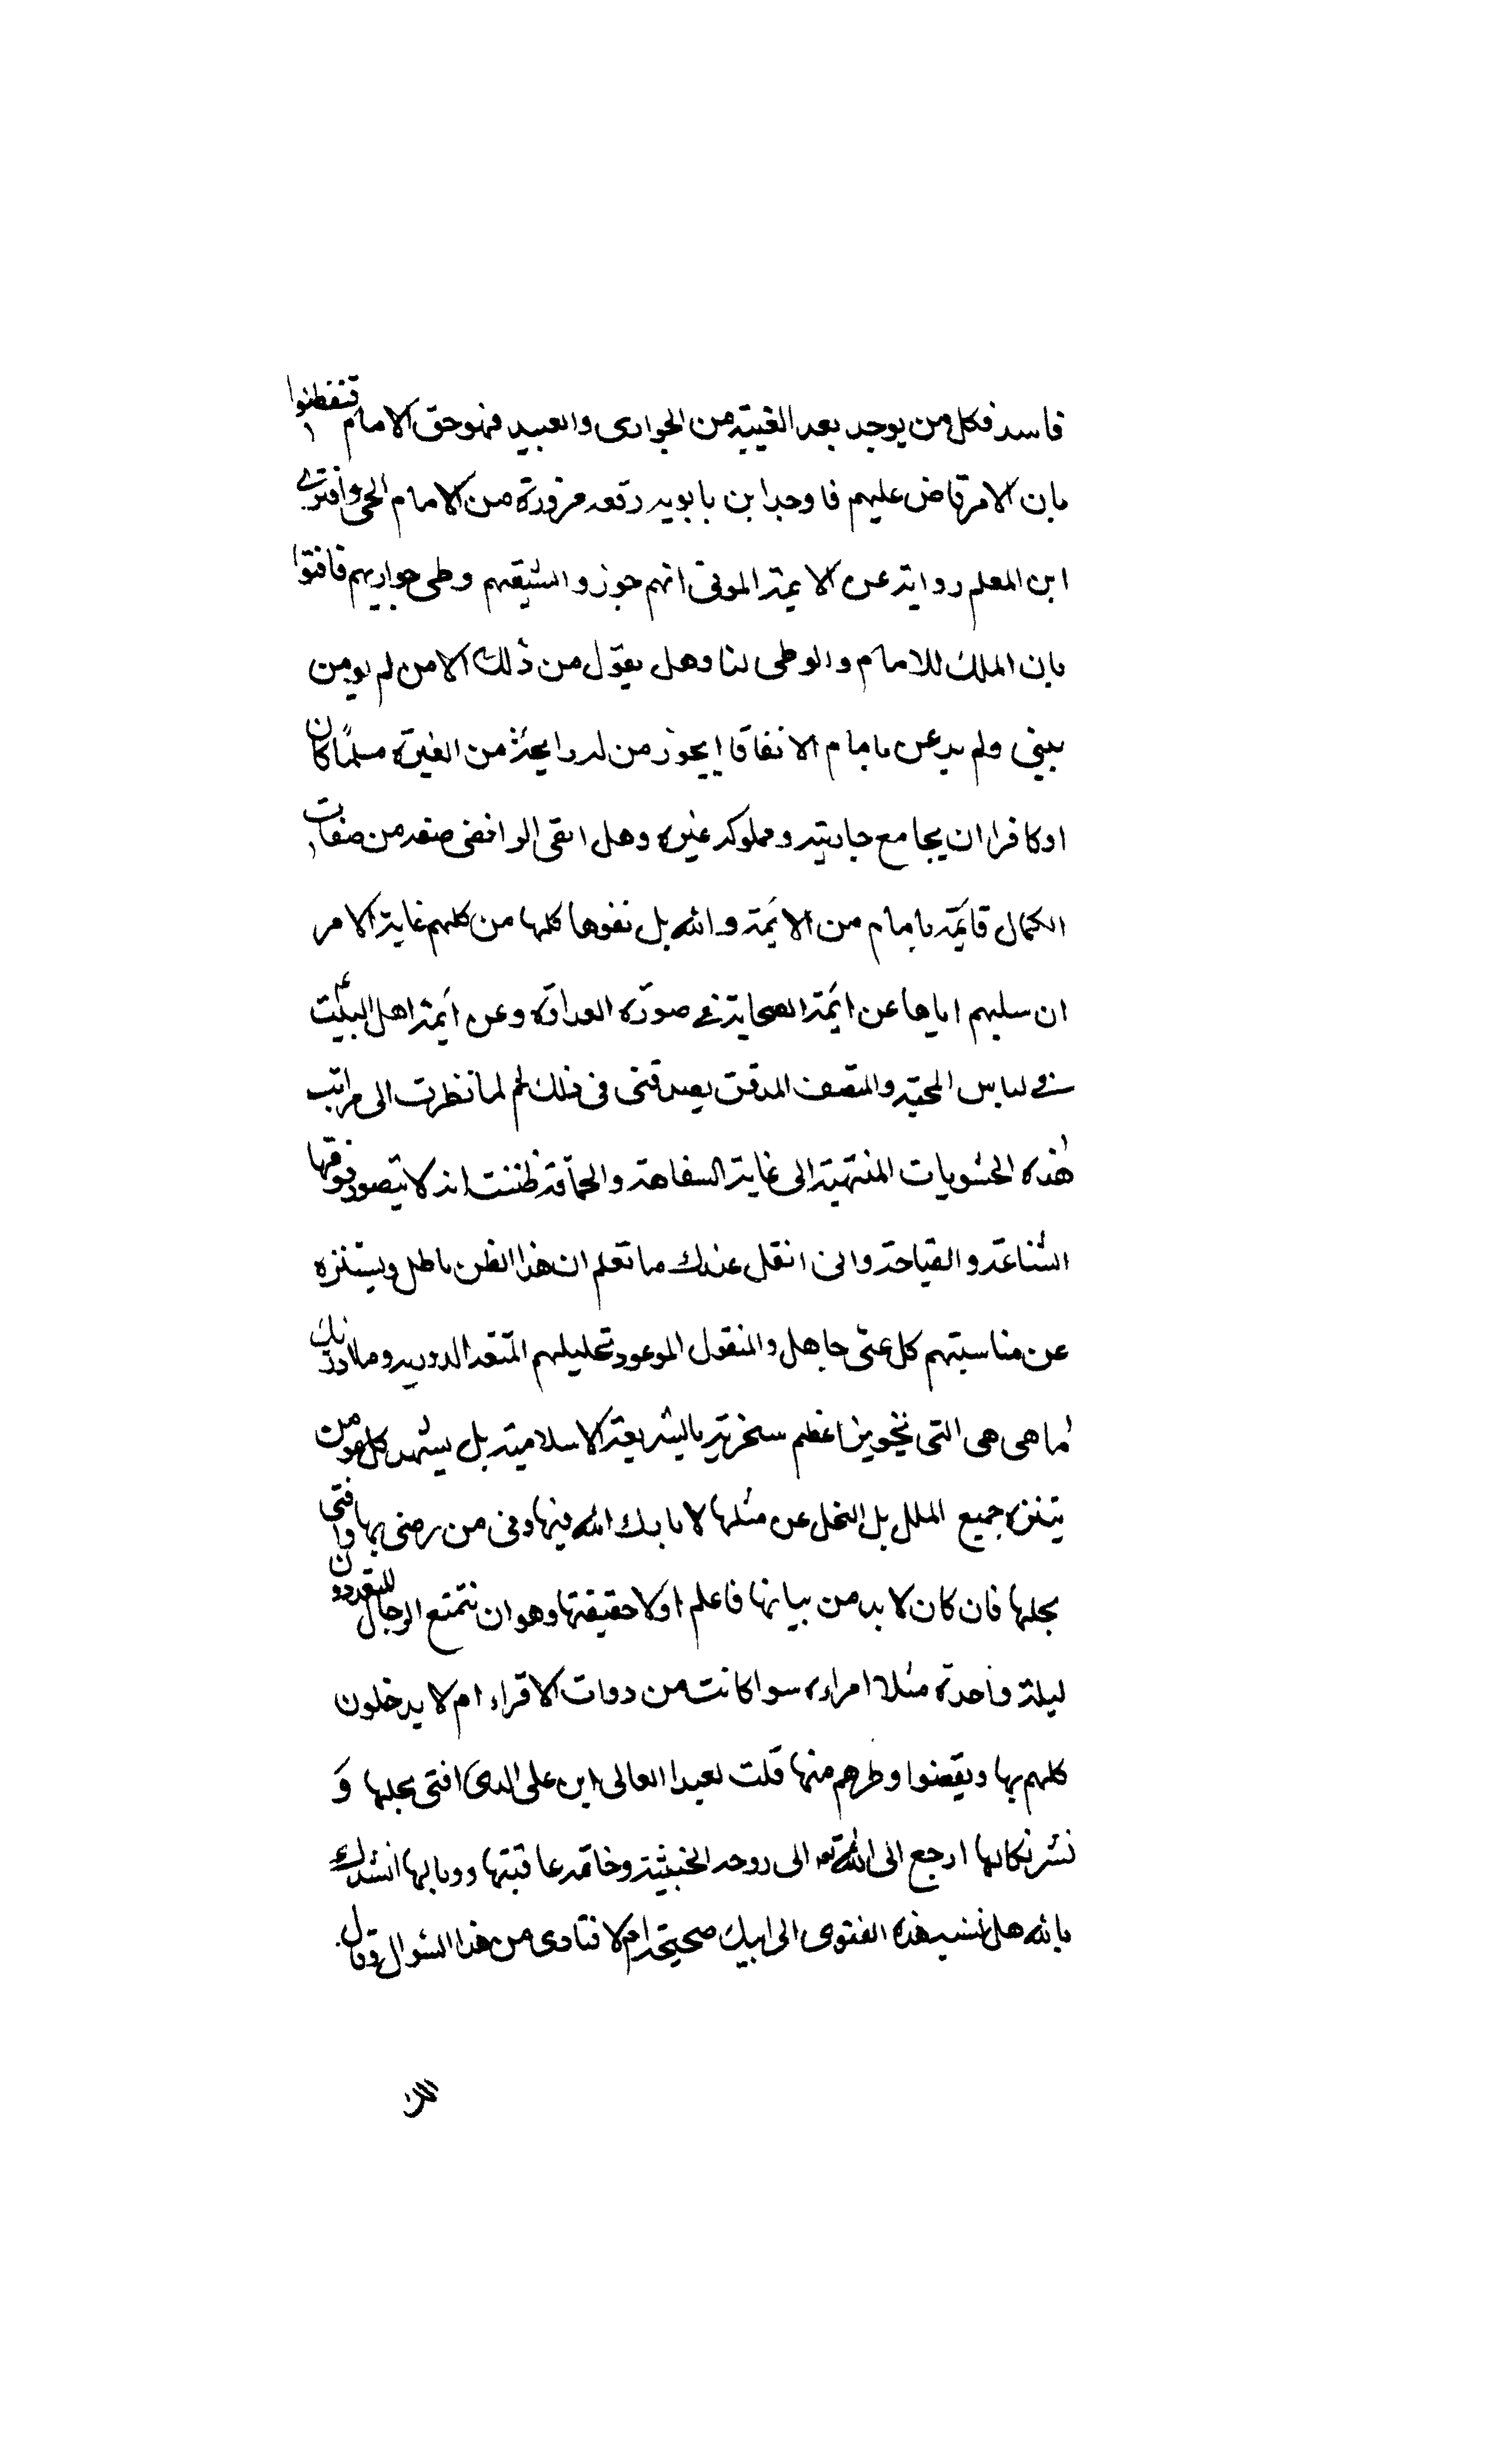 فاسد فكل من يوجد بعد الغيبة من الجوارى والعبيد فهو حق الامام تنفطنوا
بان الامر قاض عليهم فاوجد ابن بابويه رقعه مزورة من الامام الحى وافترى
ابن المعلم رواية عن الايمة الموتى انهم جوزوا لشيعتهم وطى جواريهم فافتوا
بان الملك للامام والوطى لنا وهل يقول من ذلك الا من لم يومن
بنبي ولم يدعن بامام الانفاقا ايجوز من له رايحة من الغيرة مسلمًا كان
او كافرا ان يجامع جاريته ومملوكه غيره وهل ابقى الروافض صفه من صفات
الكمال قايمة بامام من الايمة والله بل نفوها كلها من كلهم غاية الامر
ان سلبهم اياها عن ايمة الصحابة في صورة العداوة وعن ايمة اهل البيت
في لباس المحبة والمنصف المدقق يصدقنى فى ذلك ثم لما نظرت الى مراتب
هذه الحشويات المنتهية الى غاية السفاهة والحماقة ظننت انه لا يتصور فوقها
الشناعة والقباحة والى انقل عندك ما تعلم ان هذا الظن باطل ويستنزه
عن مناسبتهم كل عتى جاهل والمنقول الموعود تحليلهم المتعة الدورية وملادتك
ما هى هى التى تجويزا عظم سخرية بالشريعة الاسلامية بل يشهد كل مومن
يتنزه جميع الملل بل النحل عن مثلها لا بارك الله فيها وفى من رضى بها وافتى
بحلها فان كان لا بد من بيانها فاعلم اولا حقيقتها وهو ان تتمتع الرجال المتعددون
ليلة واحدة مثلا امراءه سوا كانت من دوات الاقراء ام لا يدخلون
كلهم بها ويقضوا وطرهم منها قلت لعبد العالى ابن على الدى افتى بحلها و
نشر نكالها ارجع الى الله تع الى روحه الخبيثة وخاتمه عاقبتها ووبالها انشدك
بالله هل نسب هذه الفتوى الى ابيك صحيحة ام لا فتادى من هذا السوال وقال